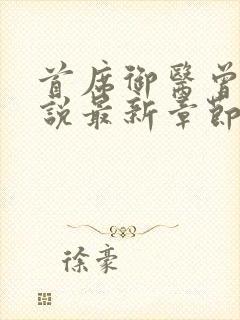 首席御醫曾
說最新章節
徐豪